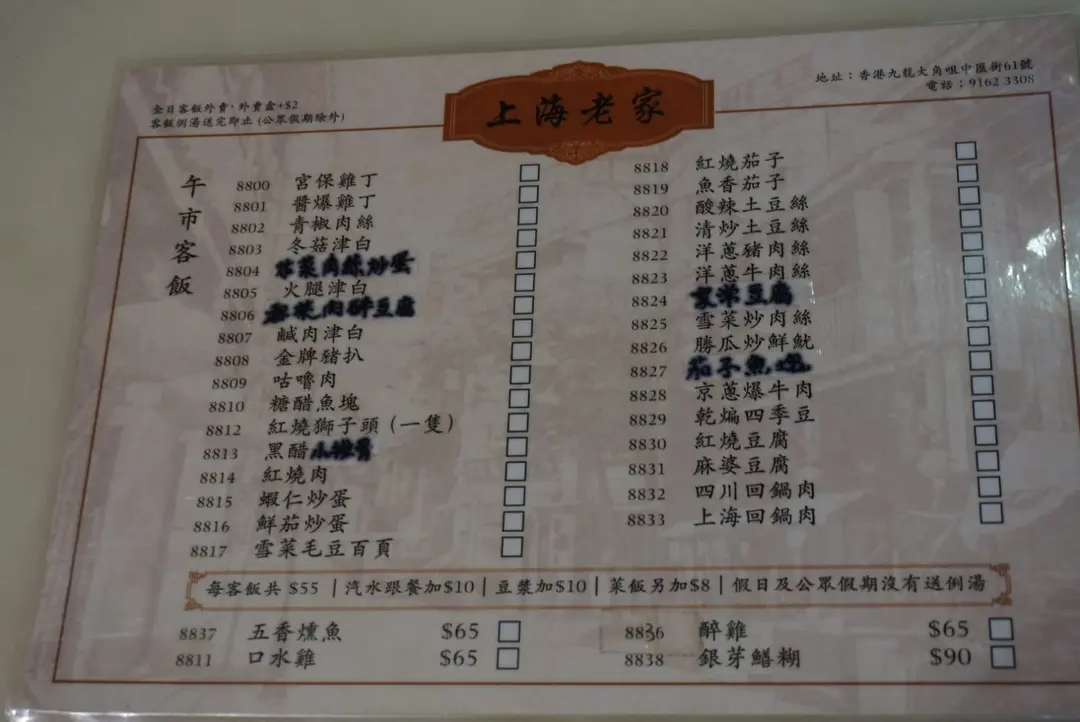 全日客飯外賣，外賣盒+$2
客飯例湯送完即止 (公眾假期除外)
上海老家
地址：香港九龍大角咀中匯街61號
電話：9162 3308
午市客飯
8800 宮保雞丁
8801 醬爆雞丁
8802 青椒肉絲
8803 冬菇津白
8804 肉絲炒蛋
8805 火腿津白
8806 肉碎豆腐
8807 鹹肉津白
8808 金牌豬扒
8809 咕嚕肉
8810 糖醋魚塊
8812 紅燒獅子頭 (一隻)
8813 黑醋小排骨
8814 紅燒肉
8815 蝦仁炒蛋
8816 鮮茄炒蛋
8817 雪菜毛豆百頁
8818 紅燒茄子
8819 魚香茄子
8820 酸辣土豆絲
8821 清炒土豆絲
8822 洋蔥豬肉絲
8823 洋蔥牛肉絲
8824 家常豆腐
8825 雪菜炒肉絲
8826 勝瓜炒鮮魷
8827 茄子魚塊
8828 京蔥爆牛肉
8829 乾煸四季豆
8830 紅燒豆腐
8831 麻婆豆腐
8832 四川回鍋肉
8833 上海回鍋肉
每客飯共 $55 | 汽水跟餐加$10 | 豆漿加$10 | 菜飯另加$8 | 假日及公眾假期沒有送例湯
8837 五香燻魚 $65
8811 口水雞 $65
8836 醉雞 $65
8838 銀芽鱔糊 $90